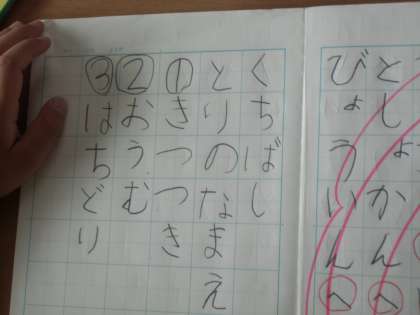 としょかんへ
びょういんへ
くちばし
とりのなまえ
①きつつき
②おうむ
③はちどり